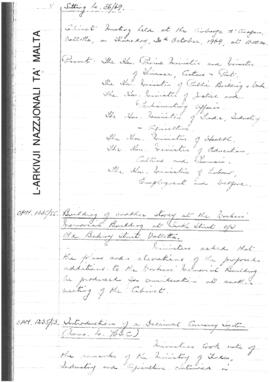 Sitting No. 56/69.
Cabinet Meeting held at the Auberge d'Aragon,
Valletta, on Thursday, 30th October, 1969, at
Present: The Hon. Prime Minister and Minister
of Finance, Customs & Port.
The Hon. Minister of Public Building & Works
The Hon. Minister of Justice and
Parliamentary Affairs
The Hon. Minister of Trade, Industry
& Agriculture
The Hon. Minister of Health.
The Hon. Minister of Education,
Culture and Tourism.
The Hon. Minister of Labour,
Employment and Welfare.
L-ARKIVJI NAZZJONALI TA' MALTA
OPM. Building of another Storey at the Workers'
Memorial Building at South Street
Old Bakery Street, Valletta.
Ministers asked that
the plans and elevations of the proposed
additions to the Workers' Memorial Building
be produced for consideration at another
meeting of the Cabinet.
OPM. Introduction of a Decimal Currency System
Ministers took note of
the remarks of the Ministry of Trade,
Industry and Agriculture contained in